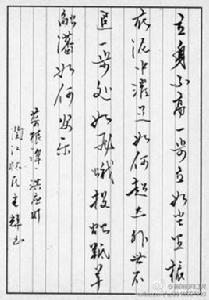 立身不高一步立如尘里振
衣泥中濯足如何超达处世不
退一步处如飞蛾投烛羝羊
触藩如何安乐
菜根谭 洪应明